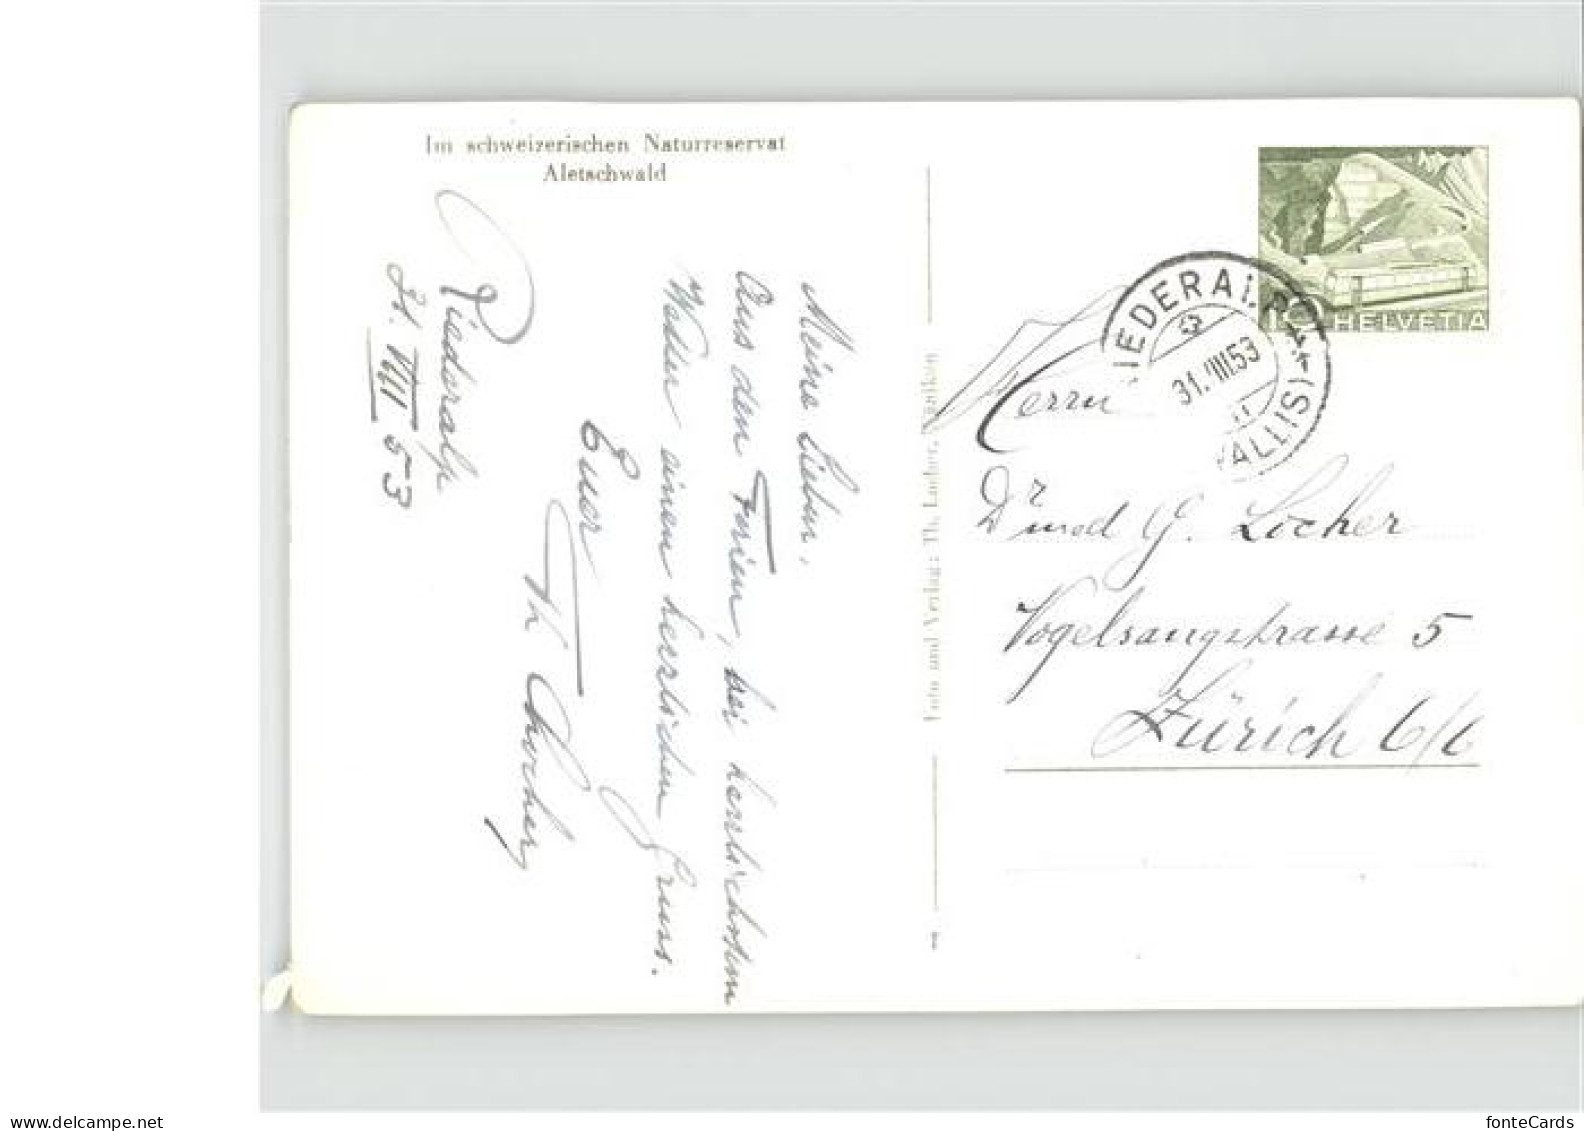 Im schweizerischen Naturreservat
Aletschwald
Riederalp
31. VIII 53
Meine Lieben,
Aus den Ferien, bei herrlichstem
Wetter einen herzlichen Gruss.
Euer
Th
Foto und Verlag: Th. Locher,
HELVETIA
10
RIEDERALP (WALLIS)
31.VIII.53
Herrn
Dr med G. Locher
Vogelsangstrasse 5
Zürich 6/6
www.delcampe.net
fonteCards